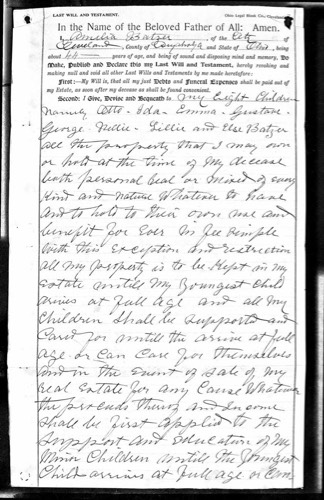 LAST WILL AND TESTAMENT. Ohio Legal Blank Co., Cleveland
In the Name of the Beloved Father of All: Amen.
I Amelia Batzer of the City of
Cleveland County of Cuyahoga and State of Ohio, being
about 44 years of age, and being of sound and disposing mind and memory, Do
Make, Publish and Declare this my Last Will and Testament, hereby revoking
making null and void all other Last Wills and Testaments by me made heretofore:
First:—My Will is, that all my just Debts and Funeral Expenses shall be paid out of
my Estate, as soon after my decease as shall be found convenient.
Second: I Give, Devise and Bequeath to my Eight Children
Namely Otto - Ida - Emma - Gustave -
George Nellie - Lillie and Else Batzer
all the property that I may own
or hold at the time of my decease
both personal Real or Mixed of every
Kind and nature Whatever to have
and to hold to their own use and
benefit for Ever in fee simple
With this Exception and restriction
all my property is to be Kept in my
Estate untill My Youngest Child
arrives at full age and all my
Children Shall be Supported and
Cared for untill the arrive at full
age or Can Care for themselves
and in the Event of Sale of my
real Estate for any Cause Whatever
the proceeds thereof and Income
Shall be first applied to the
Support and Education of My
Minor Children untill the Youngest
Child arrives at full age or